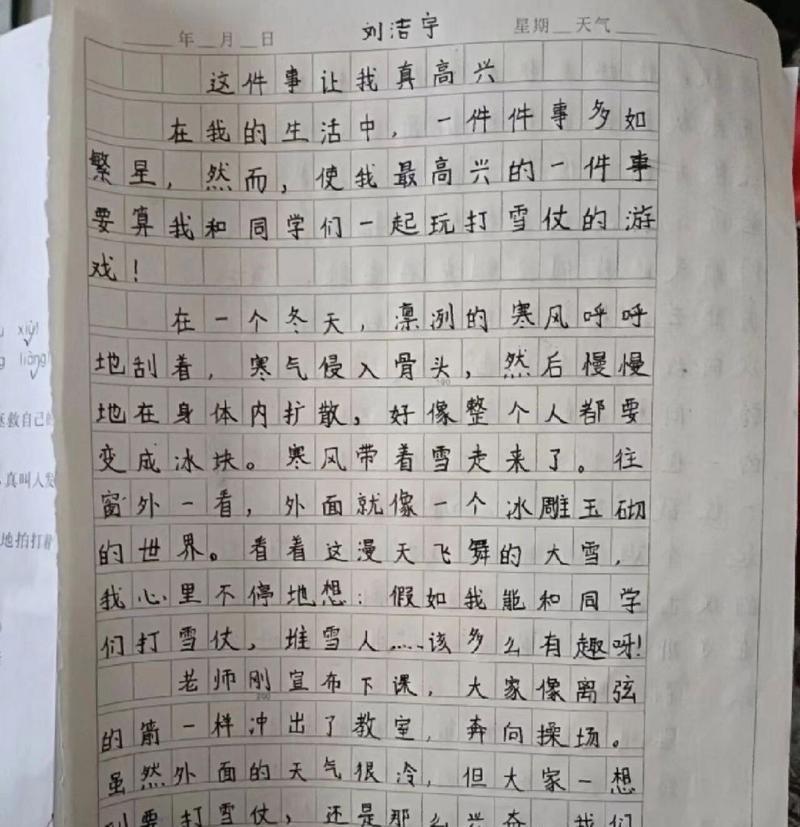 年 月 日 刘洁宇 星期 天气
这件事让我真高兴
在我的生活中，一件件事多如
繁星，然而，使我最高兴的一件事
要算我和同学们一起玩打雪仗的游
戏！
在一个冬天，凛冽的寒风呼呼
地刮着，寒气侵入骨头，然后慢慢
地在身体内扩散，好像整个人都要
变成冰块。寒风带着雪走来了。往
窗外一看，外面就像一个冰雕玉砌
的世界。看着这漫天飞舞的大雪，
我心里不停地想：假如我能和同学
们打雪仗，堆雪人……该多么有趣呀！
老师刚宣布下课，大家像离弦
的箭一样冲出了教室，奔向操场。
虽然外面的天气很冷，但大家一想
到要打雪仗，还是那么兴奋。我们
xiù
liàng
拯救自己的
真叫人发
地拍打着